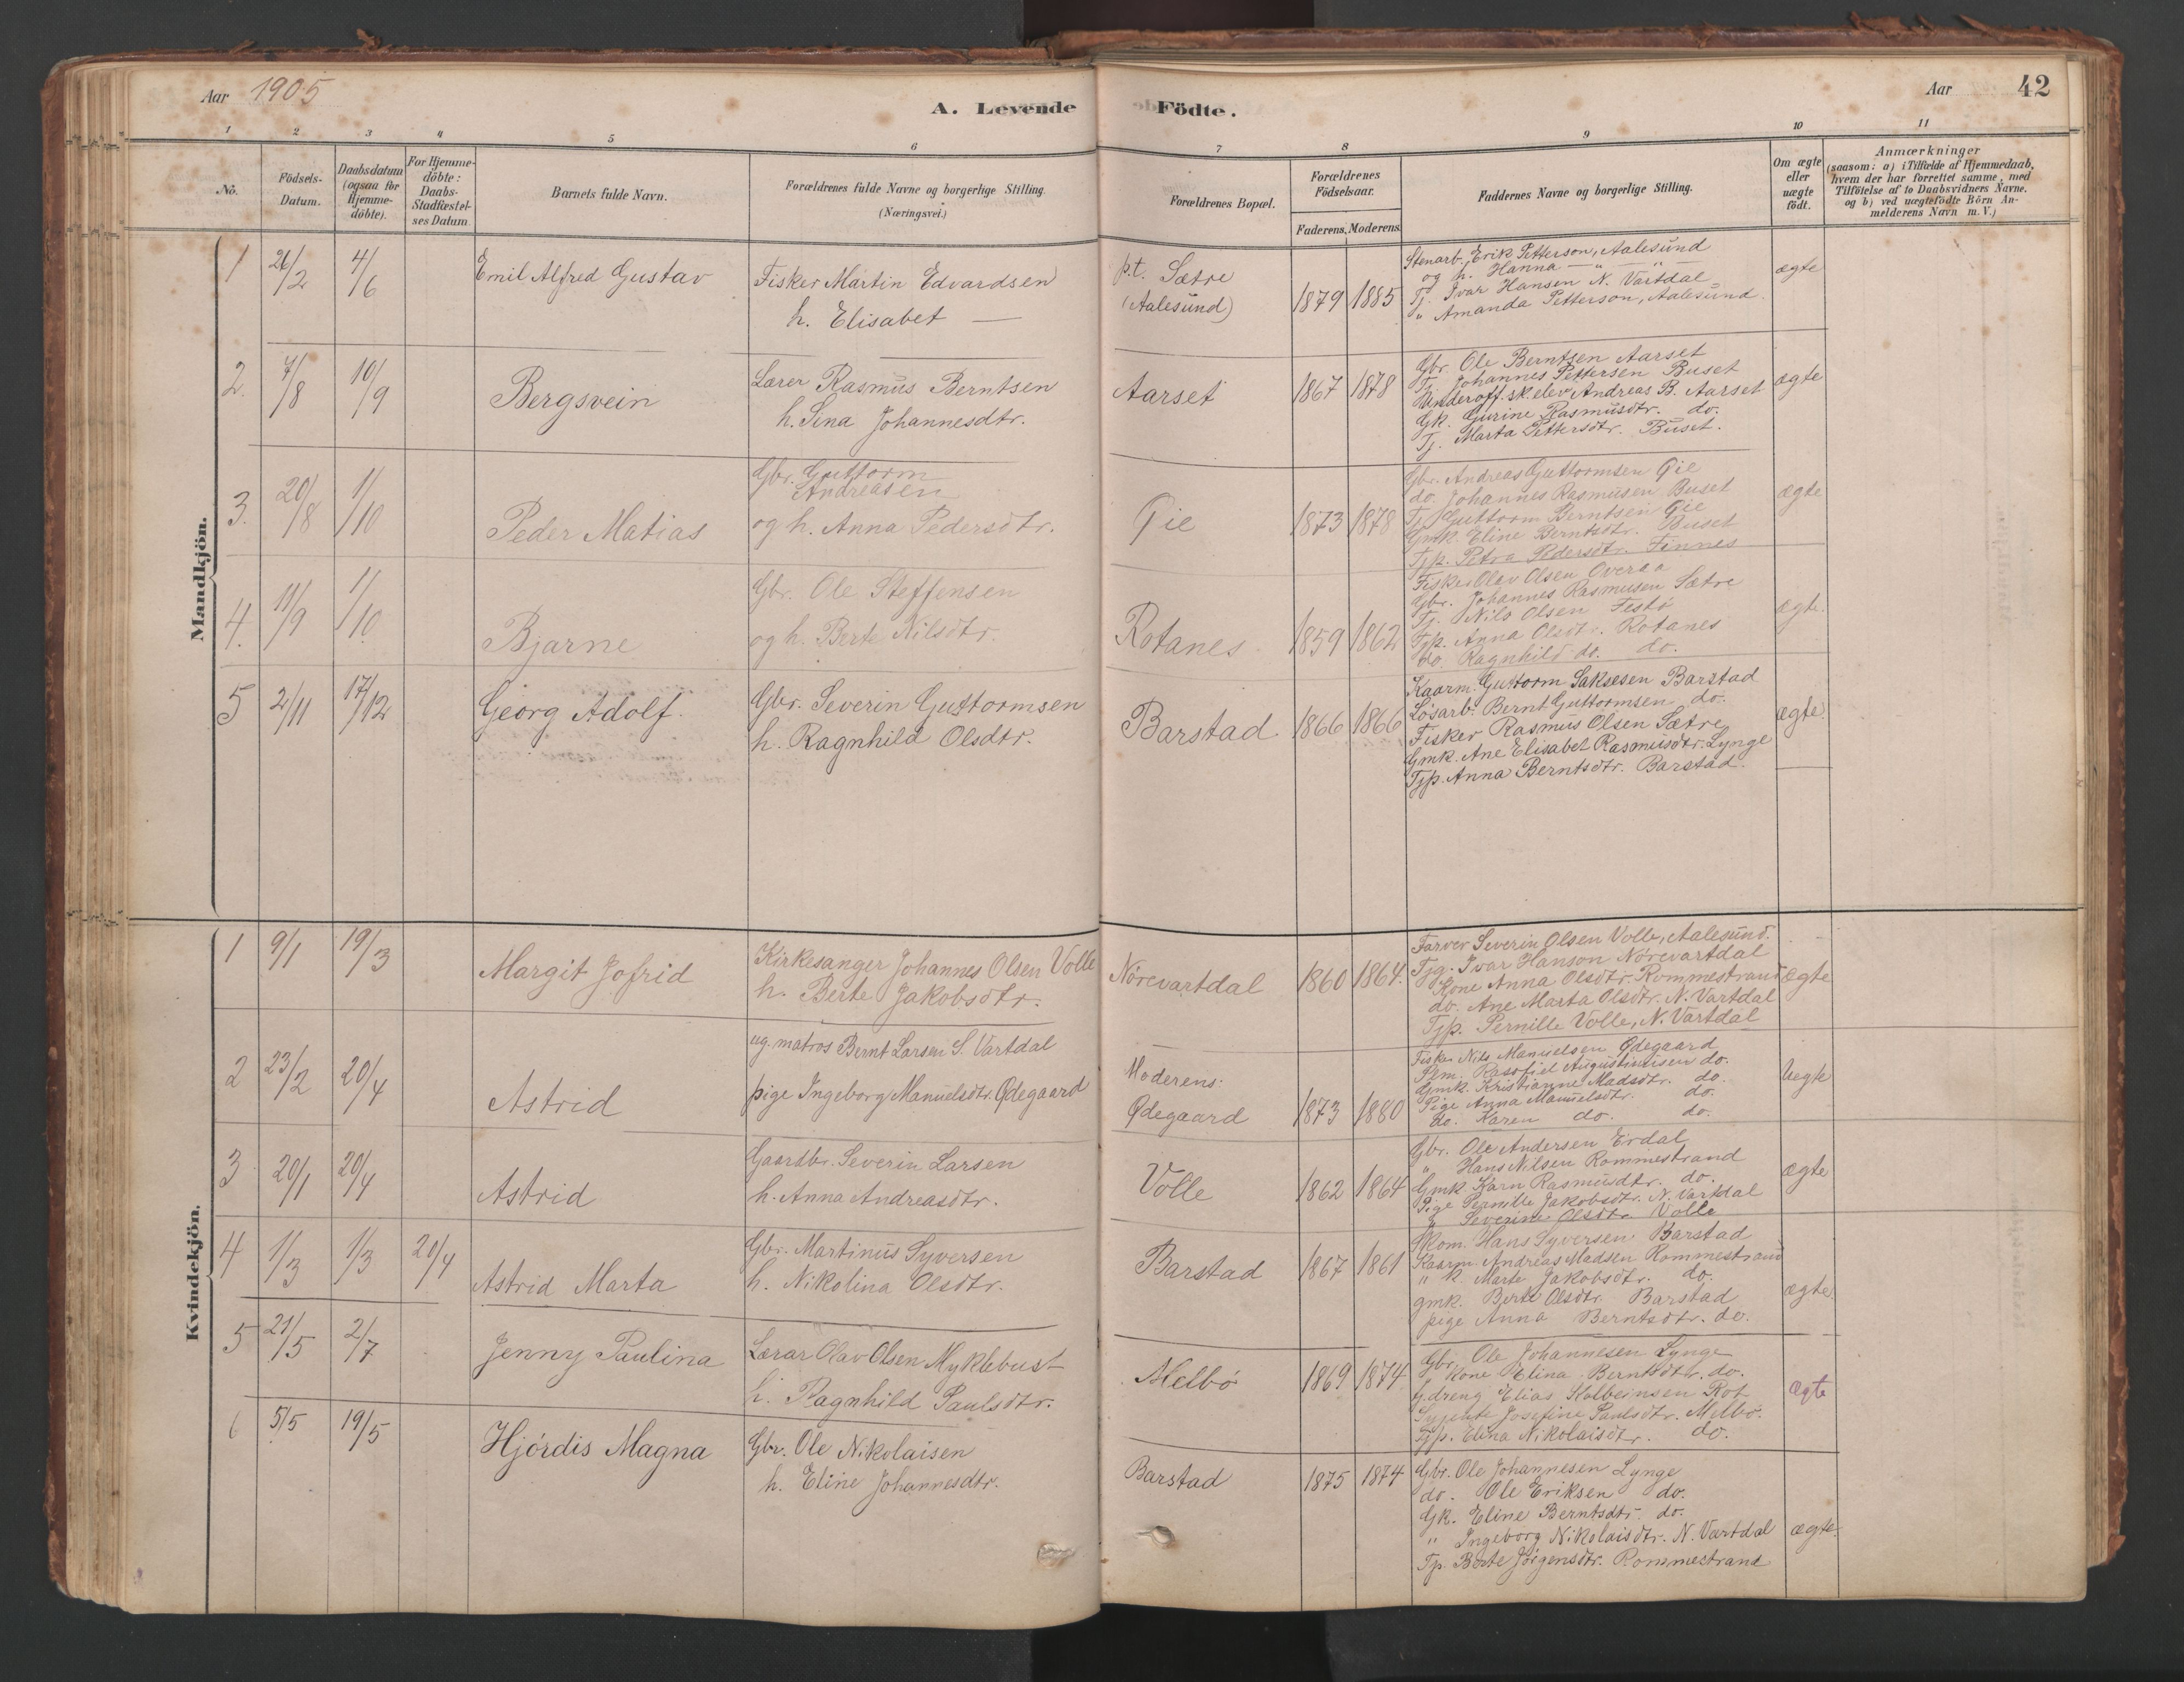 Aar 1905
A. Levende Födte.
Aar 42
1 2 3 4 5 6 7 8 9 10 11
No.
Födsels-Datum.
Daabsdatum (ogsaa for Hjemme-döbte).
For Hjemme-döbte: Daabs-Stadfæstel-ses Datum.
Barnets fulde Navn.
Forældrenes fulde Navne og borgerlige Stilling. (Næringsvei.)
Forældrenes Bopæl.
Forældrenes Födselsaar.
Faderens. Moderens.
Faddernes Navne og borgerlige Stilling.
Om ægte eller uægte födt.
Anmærkninger (saasom: a) i Tilfælde af Hjemmedaab, hvem der har forrettet samme, med Tilföielse af to Daabsvidners Navne. og b) ved uægtefödte Börn An-melderens Navn m. V.)
Mandkjön.
1 26/2 4/6 Emil Alfred Gustav
Fisker Martin Edvardsen
h. Elisabet —
p.t. Sætre
(Aalesund)
1879 1885
Stenarb. Erik Petterson, Aalesund
og h. Hanna — " — " —
Tj. Ivar Hansen N. Vartdal
" Amanda Petterson, Aalesund.
ægte
2. 7/8 10/9 Bergsvein
Lærer Rasmus Berntsen
h. Sina Johannesdtr.
Aarset 1867 1878
Gbr. Ole Berntsen Aarset
Tj. Johannes Pettersen Buset
Underoff.sk.elev Andreas B. Aarset
Gk. Gurine Rasmusdtr. do.
Tj. Marta Pettersdtr. Buset.
ægte
3. 20/8 1/10 Peder Matias
Gbr. Guttorm
Andreasen
og h. Anna Pedersdtr.
Gie 1873 1878
Gbr. Andreas Guttormsen Gie
do. Johannes Rasmusen Buset
Tj. Guttorm Berntsen Gie
Gmk. Eline Berntsdtr. Buset
Tjp. Petra Pedersdtr. Finnes
ægte
4. 11/9 1/10 Bjarne
Gbr. Ole Steffensen
og h. Berte Nilsdtr.
Rotanes 1859 1862
Fisker Olav Olsen Overaa
Gbr. Johannes Rasmusen Sætre
Tj. Nils Olsen Festö
Tjp. Anna Olsdtr. Rotanes
do. Ragnhild do. do.
ægte.
5 2/11 17/12 Georg Adolf.
Gbr. Severin Guttormsen
h. Ragnhild Olsdtr.
Barstad 1866 1866
Kaarm. Guttorm Saksesen Barstad
Lösarb. Bernt Guttormsen do.
Fisker Rasmus Olsen Sætre
Gmk. Ane Elisabet Rasmusdtr. Lynge
Tjp. Anna Berntsdtr. Barstad.
ægte.
Kvindekjön.
1 9/1 19/3 Margit Jofrid
Kirkesanger Johannes Olsen Volle
h. Berte Jakobsdtr.
Nörevartdal 1860 1864.
Farver Severin Olsen Volle, Aalesund.
Tjg. Ivar Hanson Nörevartdal
Kone Anna Olsdtr. Rommestrand
do. Ane Marta Olsdtr. N. Vartdal
Tjp. Pernille Volle, N. Vartdal
ægte
2 23/2 20/4 Astrid
ug. matros Bernt Larsen S. Vartdal
pige Ingeborg Manuelsdtr. Ødegaard
Moderens:
Ødegaard 1873 1880
Fisker Nils Manuelsen Ødegaard
Augustinusen do.
Gmk. Kristianne Madsdtr. do.
Pige Anna Manuelsdtr. do.
do. Karen do. do.
Uegte
3 20/1 20/4 Astrid
Gaardbr. Severin Larsen
h. Anna Andreasdtr.
Volle 1862 1864
Gbr. Ole Andersen Erdal
" Hans Nilsen Rommestrand
Gmk Karn Rasmusdtr. do.
Pige Pernille Jakobsdtr. N. Vartdal
Severine Olsdtr. Volle
ægte
4 1/3 1/3 20/4 Astrid Marta
Gbr. Martinus Syversen
h. Nikolina Olsdtr.
Barstad 1867 1861
Hans Syversen Barstad
Kaarm. Andreas Madsen Rommestrand
" k. Marte Jakobsdtr. do.
gmk. Berte Olsdtr. Barstad
pige Anna Berntsdtr. do.
ægte.
5 21/5 2/7 Jenny Paulina
Lærar Olav Olsen Myklebust
h. Ragnhild Paulsdtr.
Melbö 1869 1874
Gbr. Ole Johannesen Lynge
kone Elina Berntsdtr. do.
G.dreng Elias Kolbeinsen Rot
Josefine Paulsdtr. Melbö.
Tjp. Elina Nikolaisdtr. do.
ægte
6 5/5 19/5 Hjördis Magna
Gbr. Ole Nikolaisen
h. Eline Johannesdtr.
Barstad 1875 1874
Gbr. Ole Johannesen Lynge
do. Ole Eriksen do.
Gk. Eline Berntsdtr. do.
" Ingeborg Nikolaisdtr. N. Vartdal
Tp. Berte Jörgensdtr. Rommestrand
ægte.